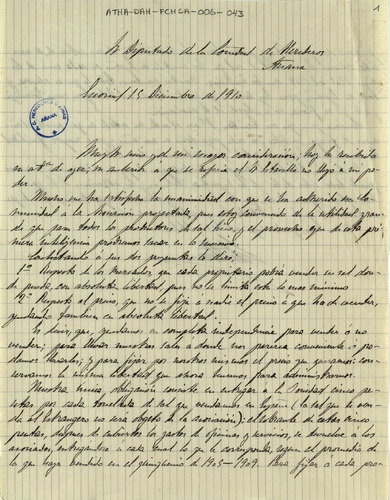 ATHA-DAH-FCHSA-006-043
1
Sr Diputado de la Comunidad de Herederos
Añana
15 Diciembre de 1910
AÑANA
Muy Sr mio y de mi mayor consideracion, hoy he recibido
su atª de ayer; la anterior a que se refiere el Sr no llegó a mi po-
der.
Mucho me ha satisfecho la unanimidad con que se ha adherido esa Co-
munidad a la Asociacion proyectada, pues estoy convencido de la utilidad gran-
de que para todos los productores de sal tiene, y el provecho que de esta pri-
mera inteligencia podremos sacar en lo sucesivo.
Contestando a sus dos preguntas le diré:
1º Respecto de los mercados, que cada propietario podrá vender su sal don-
de pueda, con absoluta libertad, pues no se limita esto lo mas minimo
2º Respecto al precio, que no se fija a nadie el precio a que ha de vender,
quedando tambien en absoluta libertad.
Es decir, que, quedamos en completa independencia para vender ó no
vender; para llevar nuestras sales a donde nos parezca conveniente ó po-
damos llevarlas; y para fijar por nosotros mismos el precio que queramos: con-
servamos la misma libertad que ahora tenemos para administrarnos.
Nuestra unica obligacion consiste en entregar a la Sociedad cinco pe-
setas por cada tonelada de sal que vendamos en España (la sal que se ven-
da al extrangero no será objeto de la asociación); el sobrante de estas cinco
pesetas, despues de cubiertos los gastos de oficinas y servicios, se devuelve á los
asociados, entregandose a cada cual lo que le corresponda, segun el promedio de
lo que haya vendido en el quinquenio de 1905-1909. Para fijar a cada pro-